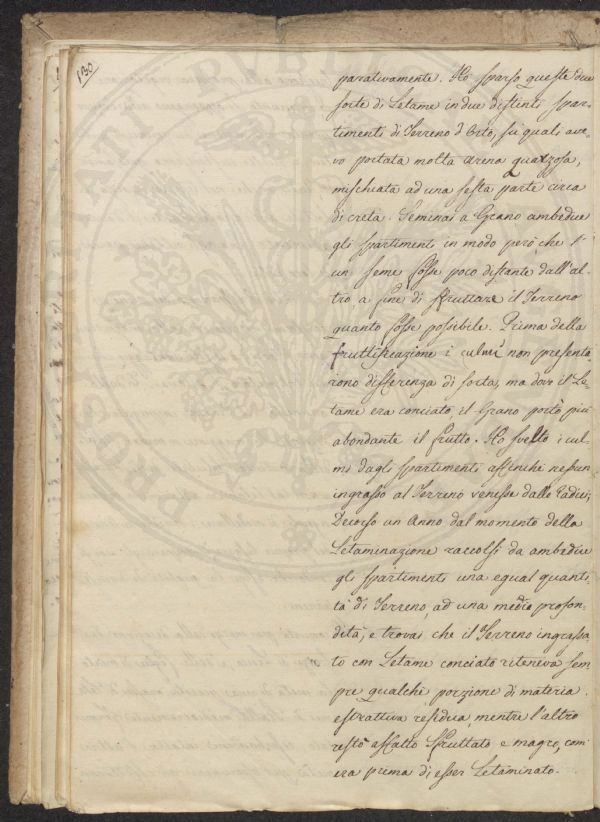 130
parativamente. Ho sparso queste due
sorte di Letame in due distinti spar-
timenti di Terreno d'Orto, su quali ave-
vo portata molta arena quarzosa,
mischiata ad una sesta parte circa
di creta. Seminai a Grano ambedue
gli spartimenti in modo però, che l'
un seme fosse poco distante dall'al-
tro, a fine di sfruttare il Terreno
quanto fosse possibile. Prima della
fruttificazione i culmi non presenta-
rono differenza di sorta, ma dove il Le-
tame era conciato, il Grano portò più
abondante il frutto. Ho svelto i cul-
mi dagli spartimenti affinché nessun
ingrasso al Terreno venisse dalle radici;
Decorso un Anno dal momento della
Letaminazione raccolsi da ambedue
gli spartimenti una egual quanti-
tà di Terreno, ad una media profon-
dità, e trovai che il Terreno ingrassa-
to con Letame conciato riteneva sem-
pre qualche porzione di materia
estrattiva residua, mentre l'altro
restò affatto sfruttato e magro, com'
era prima di esser Letaminato.